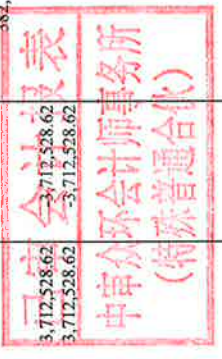 382,
3,712,528.62 -3,712,528.62
3,712,528.62 -3,712,528.62
会计报表
中审众环会计师事务所
(特殊普通合伙)